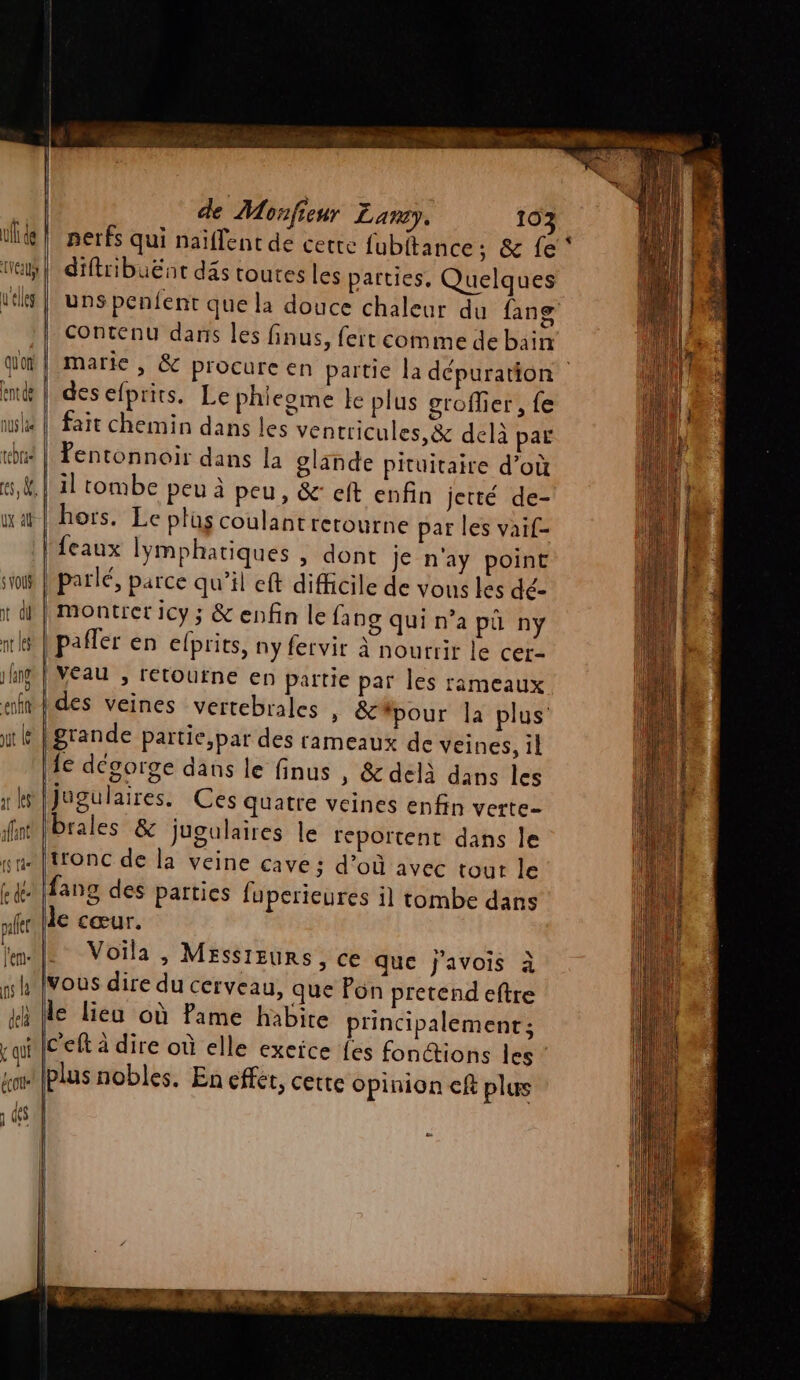 de Monſieur Lamy. 103
nerfs qui naiſſent de cette ſubſtance; & ſe
diſtribuënt dãs toutes les parties. Quelques
uns penſent que la douce chaleur du ſang
contenu dans les ſinus, ſert comme de bain
marie, & procure en partie la dépuration
des eſprits. Le phlegme le plus groſſier, ſe
fait chemin dans les ventricules, & delà par
l'entonnoir dans la glande pituitaire d'où
il tombe peu à peu, & eſt enfin jetté de-
hors. Le plus coulant retourne par les vaiſ-
ſeaux lymphatiques, dont je n'ay point
parlé, parce qu'il eſt difficile de vous les dé-
montrer icy; & enfin le ſang qui n'a pû ny
paſſer en eſprits, ny ſervir à nourrir le cer-
veau, retourne en partie par les rameaux
des veines vertebrales, & pour la plus
grande partie, par des rameaux de veines, il
ſe dégorge dans le ſinus, & delà dans les
jugulaires. Ces quatre veines enfin verte-
brales & jugulaires le reportent dans le
tronc de la veine cave; d'où avec tout le
ſang des parties ſuperieures il tombe dans
le cœur.
Voila, MESSIEURS, ce que j'avois à
vous dire du cerveau, que l'on pretend eſtre
le lieu où l'ame habite principalement;
c'eſt à dire où elle exerce ſes fonctions les
plus nobles. En effet, cette opinion eſt plus